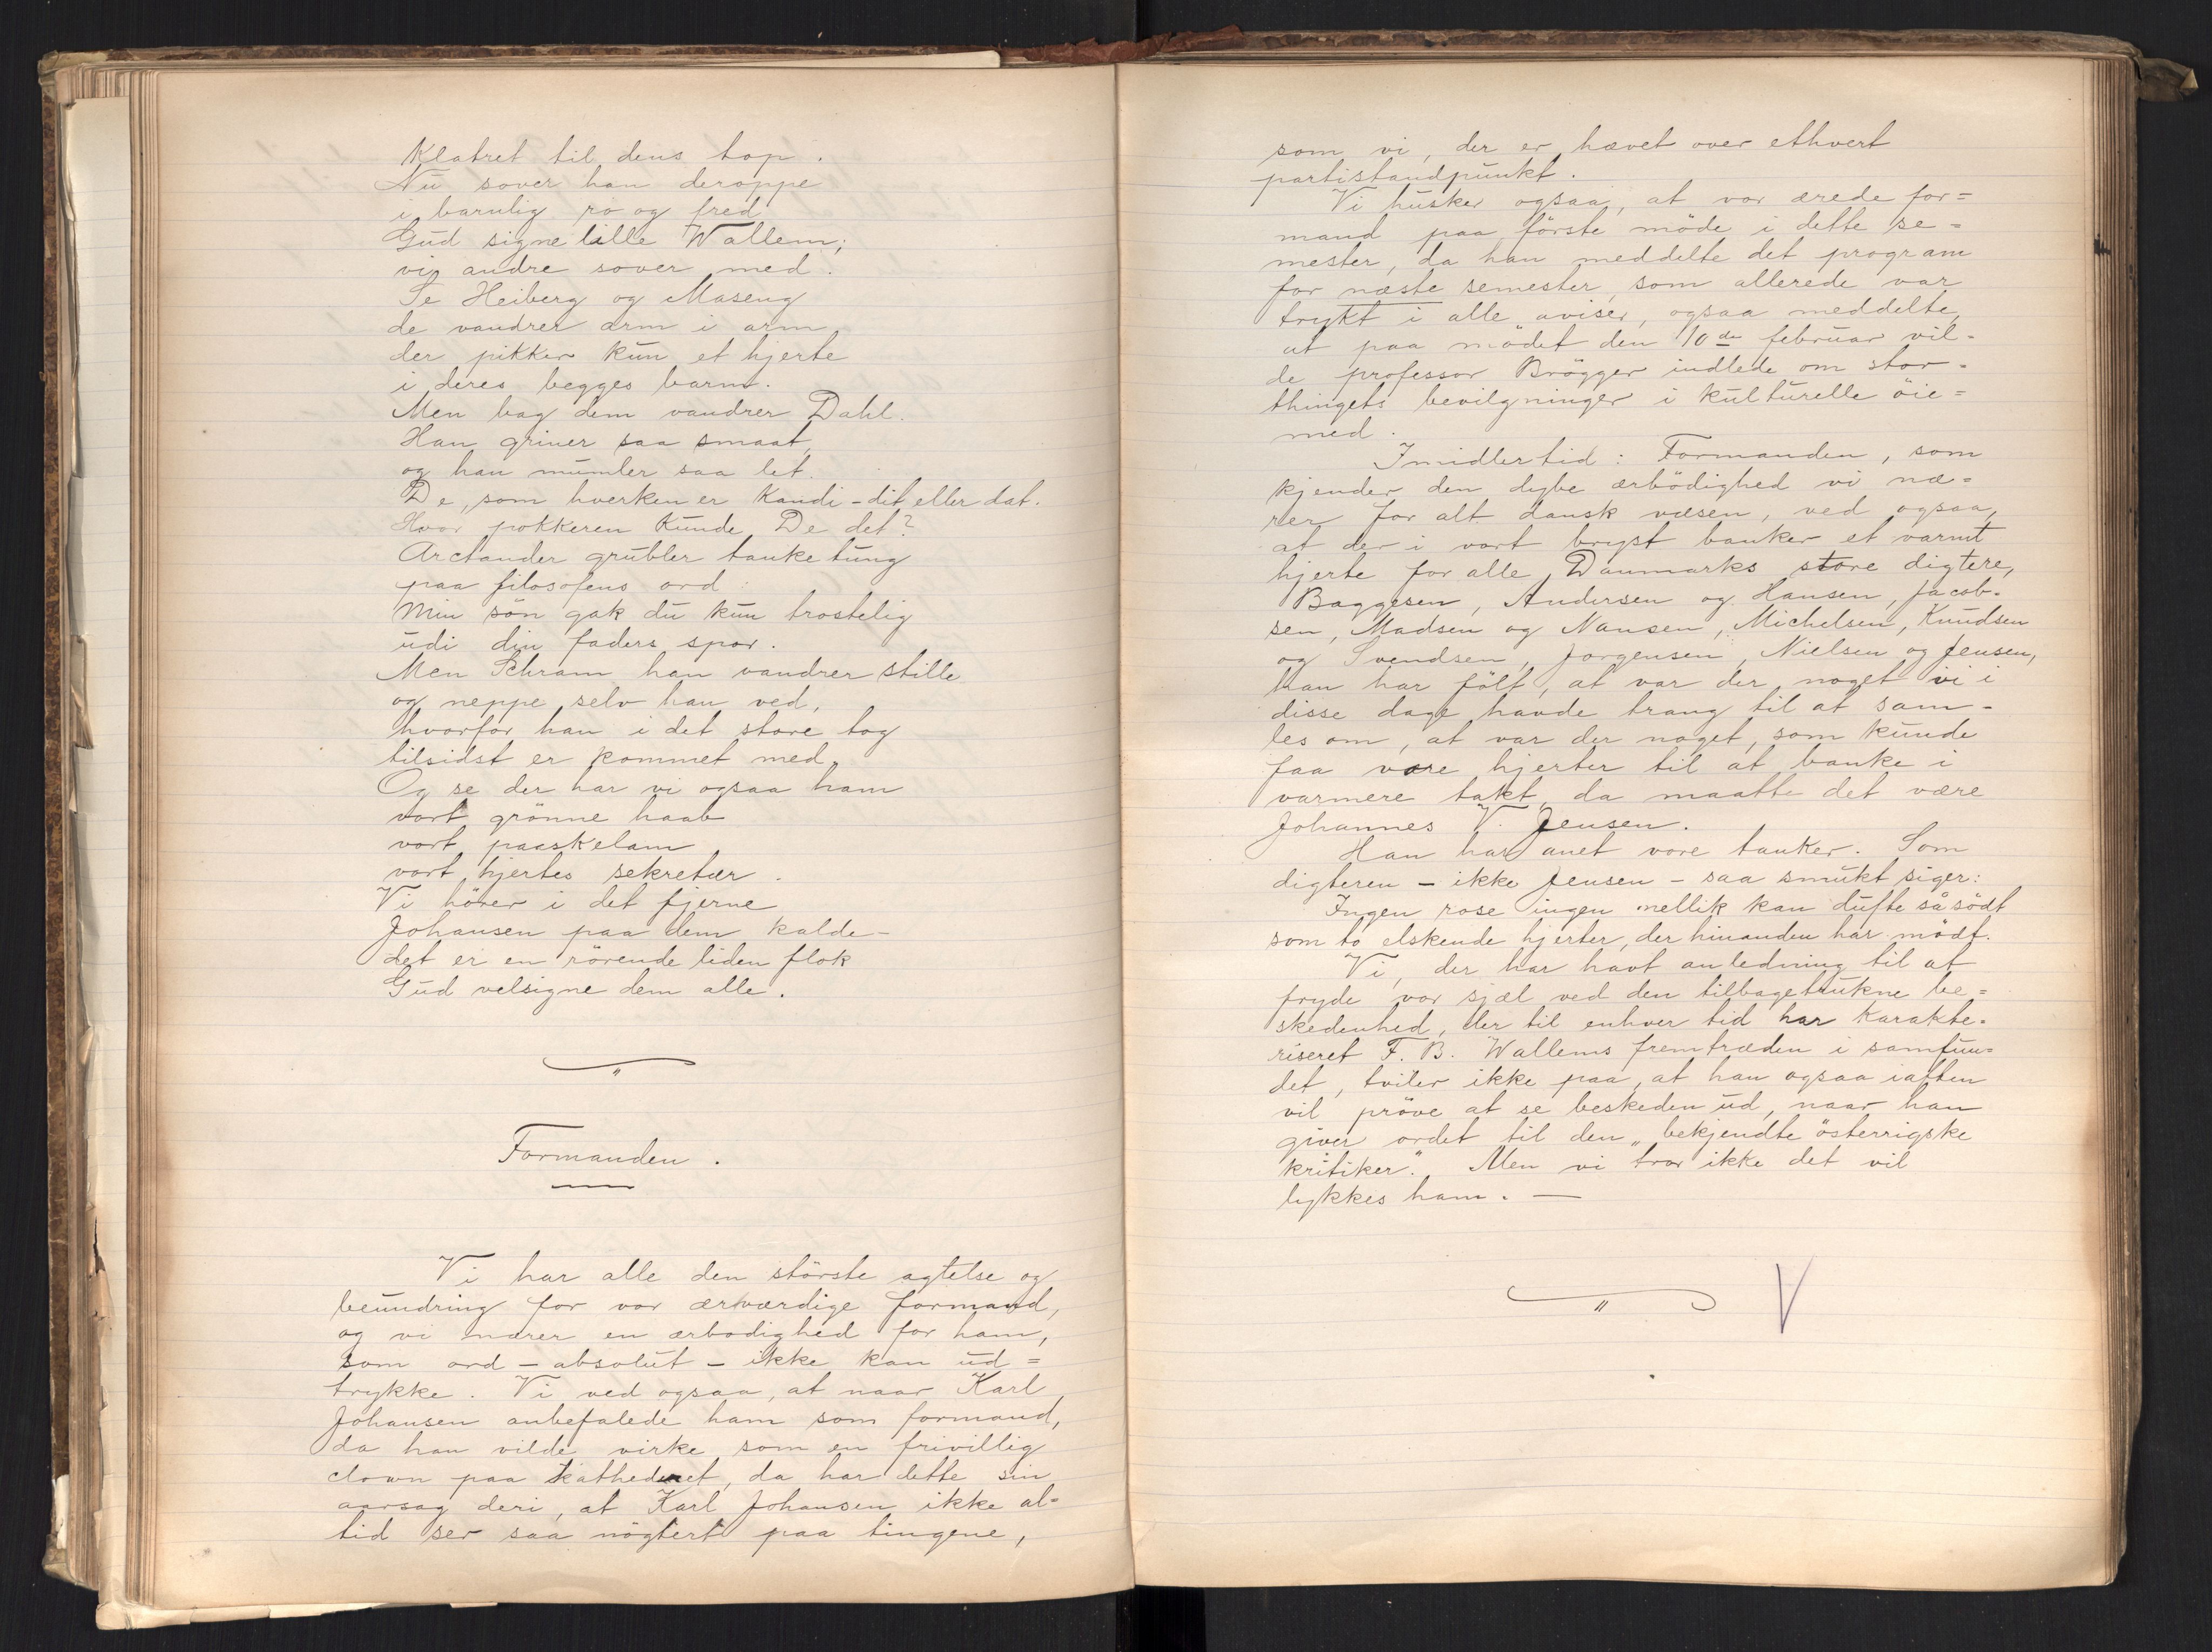 Klatret til dens top.
Nu sover han deroppe
i barnlig ro og fred
Gud signe lille Wallem;
vi andre sover med.
Se Heiberg og Maseng
de vandrer arm i arm
der pikker kun et hjerte
i deres begges barm.
Men bag dem vandrer Dahl.
Han griner saa smaat,
og han mumler saa let.
De, som hverken er Kandi-dit eller dat.
Hvor pokkeren kunde De det?
Arctander grubler tanketung
paa filosofens ord:
Min sön gak du kun trostelig
udi din faders spor.
Men Schram han vandrer stille
og neppe selv han ved,
hvorfor han i det store tog
tilsidst er kommet med.
Og se der har vi ogsaa ham
vort grönne haab
vort paaskelam
vort hjertes sekretær.
Vi hörer i det fjerne
Johansen paa dem kalde-
det er en rörende liden flok
Gud velsigne dem alle.
"
Formanden.
Vi har alle den störste agtelse og
beundring for vor ærværdige formand,
og vi nærer en ærbodighed for ham,
som ord - absolut - ikke kan ud=
trykke. Vi ved ogsaa, at naar Karl
Johansen anbefalede ham som formand,
da han vilde virke som en frivillig
clown paa kathederet, da har dette sin
aarsag deri, at Karl Johansen ikke al=
tid ser saa nögtert paa tingene,
som vi, der er hævet over ethvert
partistandpunkt.
Vi husker ogsaa, at vor ærede for=
mand paa förste möde i dette se=
mester, da han meddelte det program
for næste semester, som allerede var
trykt i alle aviser, ogsaa meddelte,
at paa mödet den 10de februar vil=
de professor Brögger indlede om stor=
thingets bevilgninger i kulturelle öie=
med.
Imidlertid: Formanden, som
kjender den dybe ærbödighed vi næ=
rer for alt dansk væsen, ved ogsaa,
at der i vort bryst banker et varmt
hjerte for alle Danmarks store digtere,
Baggesen, Andersen og Hansen, Jacob=
sen, Madsen og Nansen, Michelsen, Knudsen
og Svendsen, Jorgensen, Nielsen og Jensen,
Han har fölt, at var der noget vi i
disse dage havde trang til at sam=
les om, at var der noget, som kunde
faa vore hjerter til at banke i
varmere takt, da maatte det være
Johannes V. Jensen.
Han har anet vore tanker. Som
digteren - ikke Jensen - saa smukt siger:
Ingen rose ingen nellik kan dufte så södt
som to elskende hjerter, der hinanden har mödt.
Vi, der har havt anledning til at
fryde vor sjæl ved den tilbagetrukne be=
skedenhed, der til enhver tid har karakte=
riseret F. B. Wallems fremtræden i samfun=
det, tviler ikke paa, at han ogsaa iaften
vil pröve at se beskeden ud, naar han
giver ordet til den „bekjendte österrigske
kritiker." Men vi tror ikke det vil
lykkes ham. —
"
V